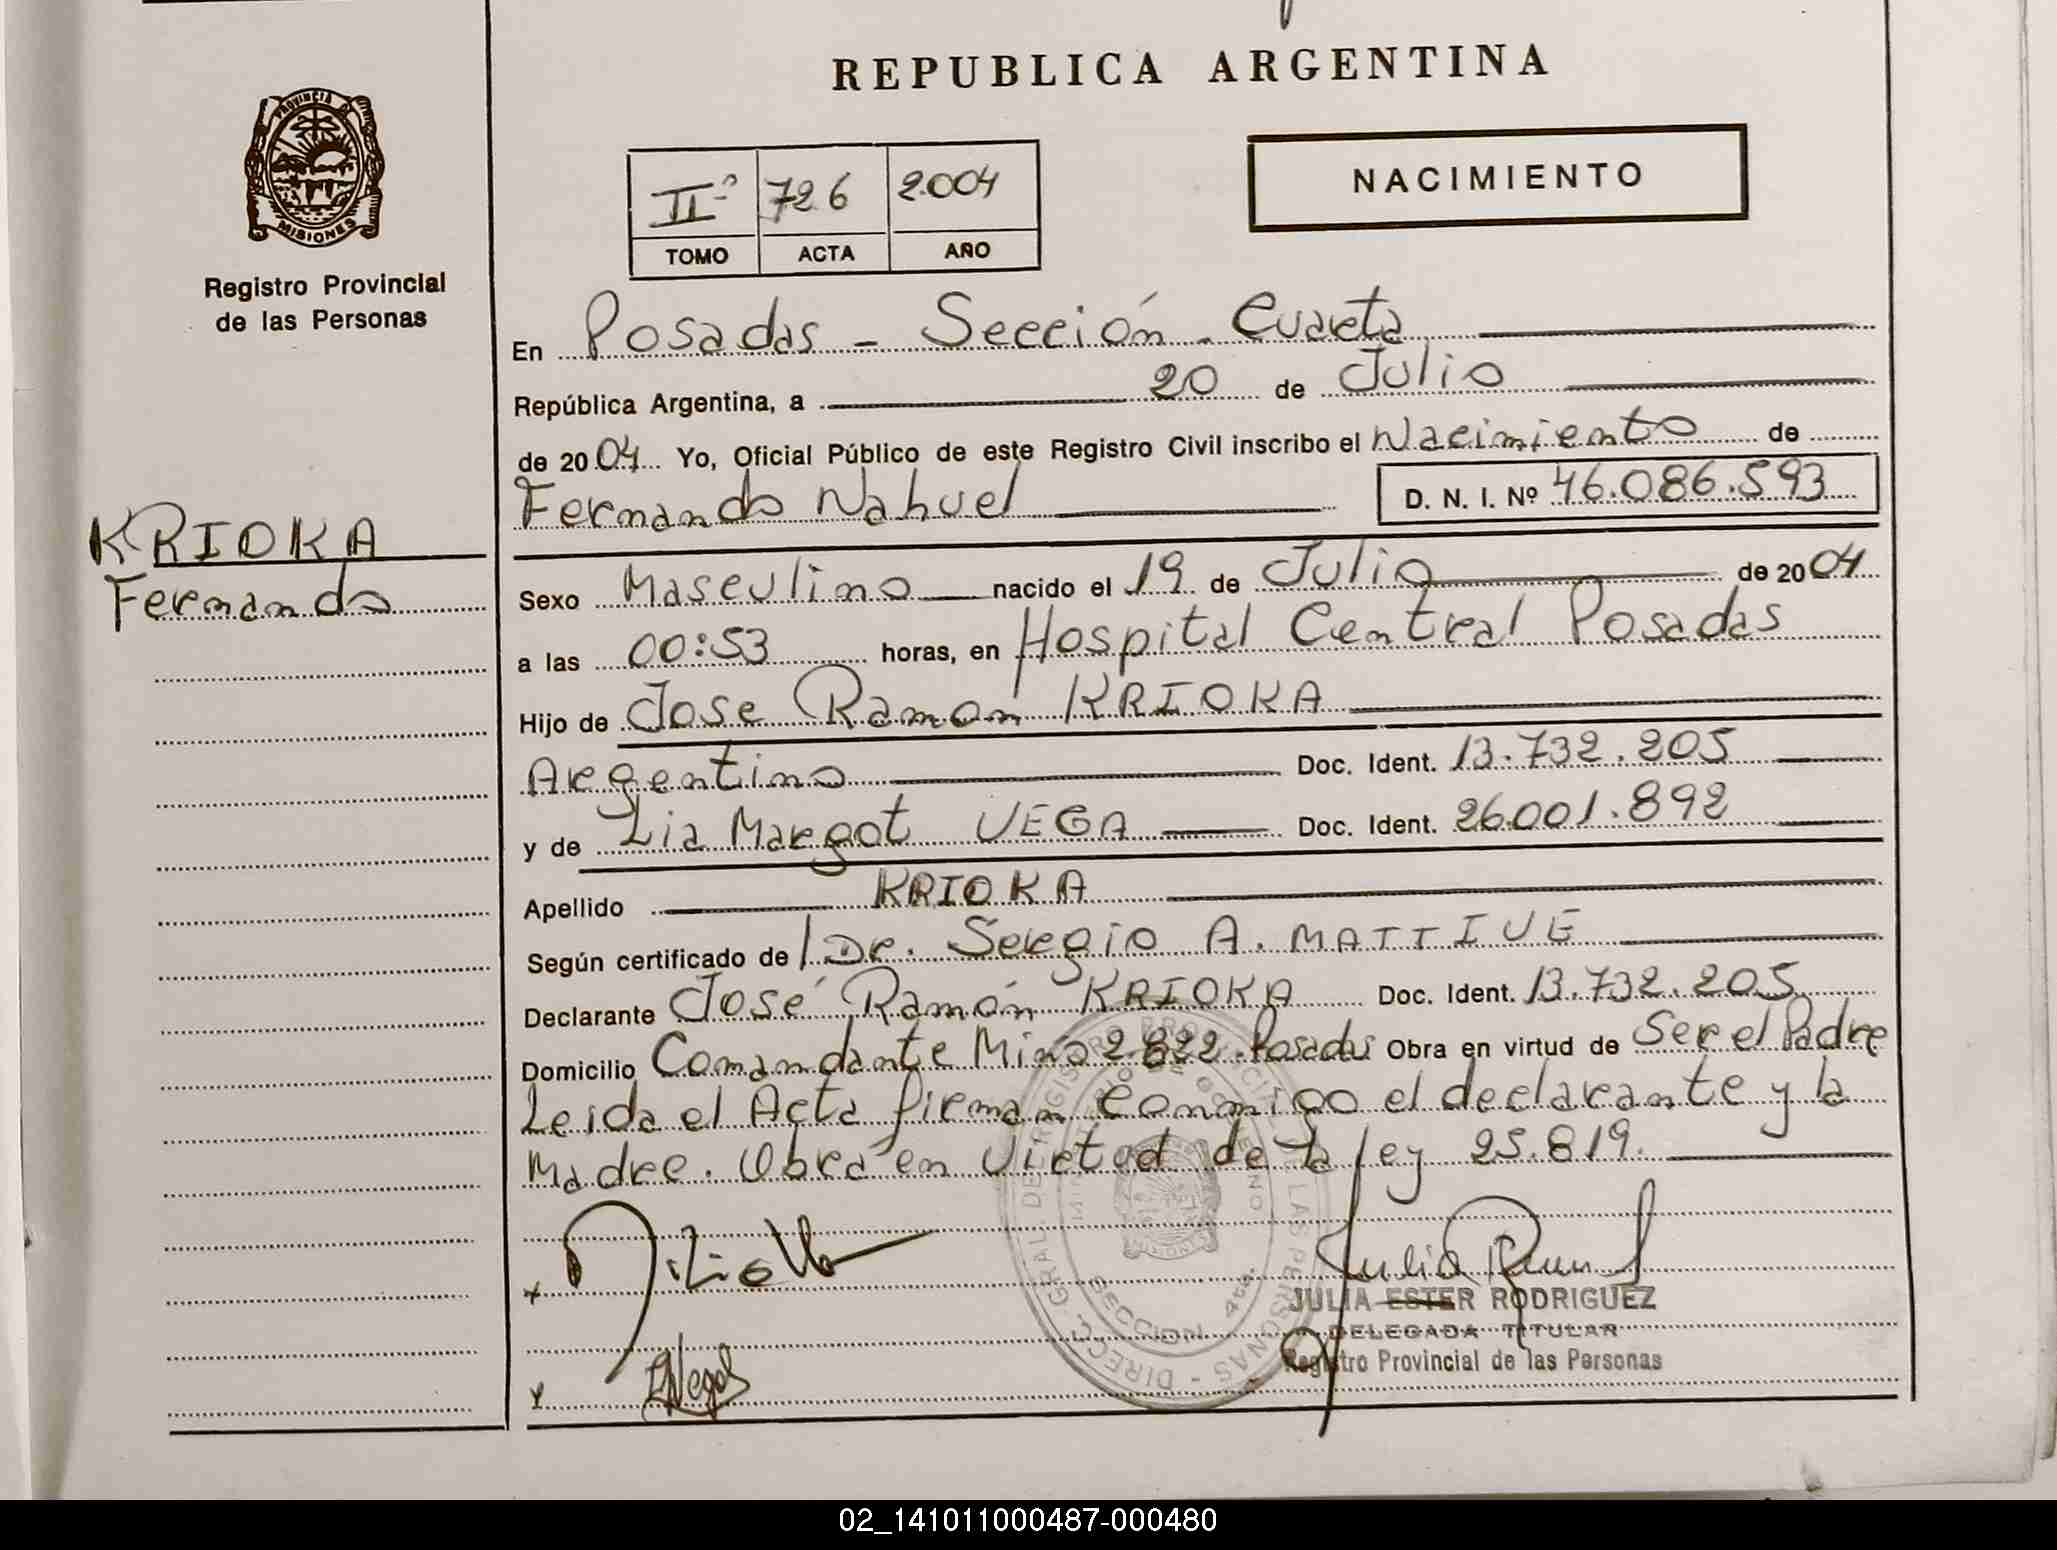 REPUBLICA ARGENTINA
PROVINCIA DE
MISIONES
Registro Provincial
de las Personas
IIº 726 2.004
TOMO ACTA AÑO
NACIMIENTO
En Posadas - Sección - Cuarta
República Argentina, a 20 de Julio
de 2004 Yo, Oficial Público de este Registro Civil inscribo el Nacimiento de
Fernando Nahuel D. N. I. Nº 46.086.593
KRIOKA
Fernando
Sexo Masculino nacido el 19 de Julio de 2004
a las 00:53 horas, en Hospital Central Posadas
Hijo de Jose Ramon KRIOKA
Argentino Doc. Ident. 13.732.205
y de Lia Margot VEGA Doc. Ident. 26.001.892
Apellido KRIOKA
Según certificado de l Dr. Sergio A. MATTIVE
Declarante José Ramón KRIOKA Doc. Ident. 13.732.205
Domicilio Comandante Miño 2822 - Posadas Obra en virtud de Ser el Padre
Leida el Acta firman conmigo el declarante y la
Madre. Obra en Virtud de la ley 25.819.
DIRECC. GRAL. DEL REGISTRO PROVINCIAL DE LAS PERSONAS
MINISTERIO DE GOBIERNO
MISIONES
SECCION 4ta.
JULIA ESTER RODRIGUEZ
DELEGADA TITULAR
Registro Provincial de las Personas
02_141011000487-000480